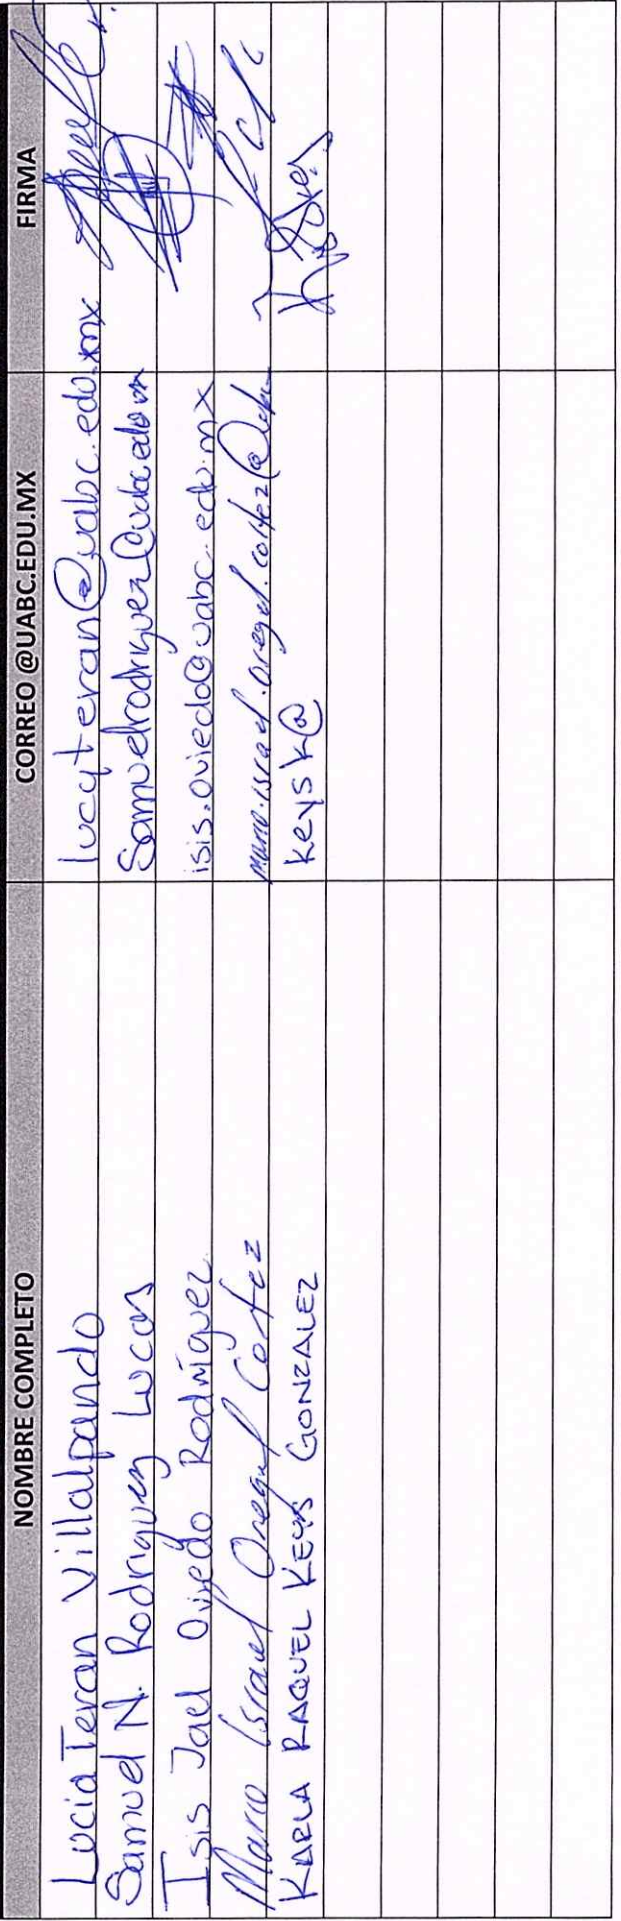 NOMBRE COMPLETO CORREO @UABC.EDU.MX FIRMA
Lucia Teran Villalpando lucyteran@uabc.edu.mx
Samuel N. Rodriguez Lucas Samuelrodriguez@uabc.edu.mx
Isis Jael Oviedo Rodríguez isis.oviedo@uabc.edu.mx
Mario Israel Oregel Cortez mario.israel.oregel.cortez@uabc
KARLA RAQUEL KEYS GONZALEZ keysk@